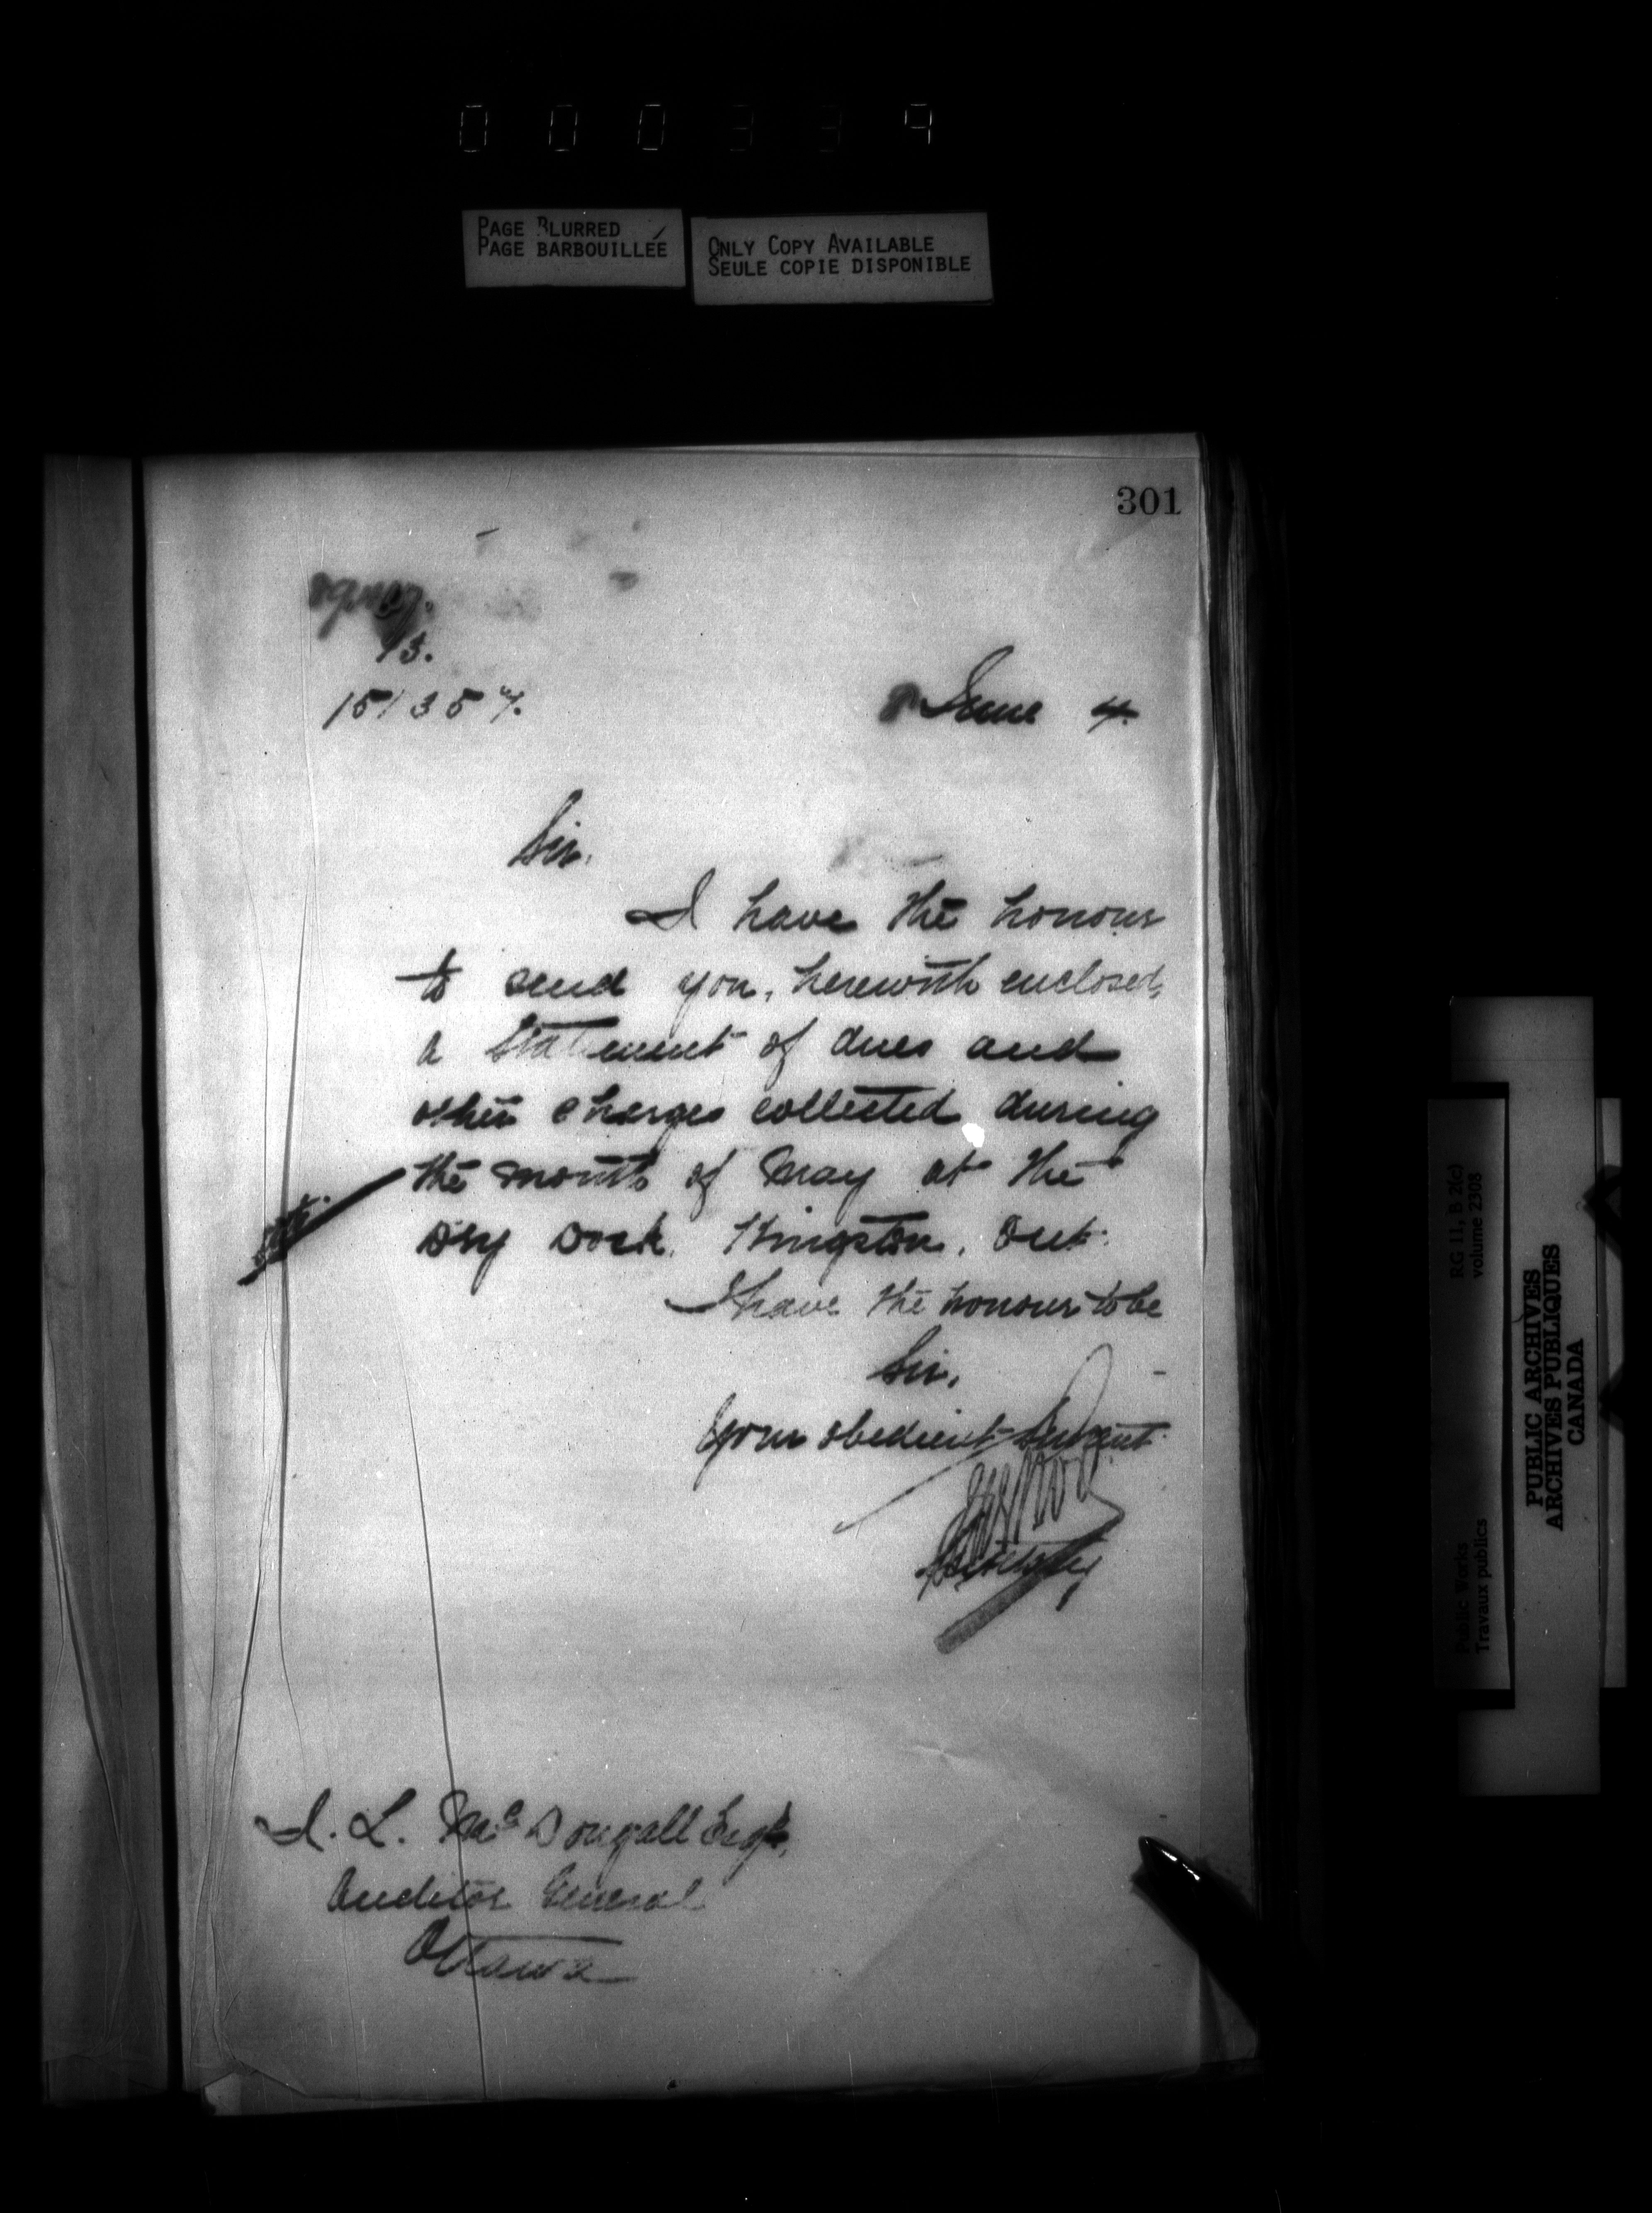 000339
PAGE BLURRED
PAGE BARBOUILLÉE
ONLY COPY AVAILABLE
SEULE COPIE DISPONIBLE
301
13.
151357.
June 4.
Sir,
I have the honour
to send you, herewith enclosed,
a statement of dues and
other charges collected during
the month of May at the
Dry Dock, Kingston, Ont.
I have the honour to be
Sir,
Your obedient Servant
Secretary
J. L. McDougall Esqr,
Auditor General
Ottawa
RG 11, B 2(c)
volume 2308
Public Works
Travaux publics
PUBLIC ARCHIVES
ARCHIVES PUBLIQUES
CANADA